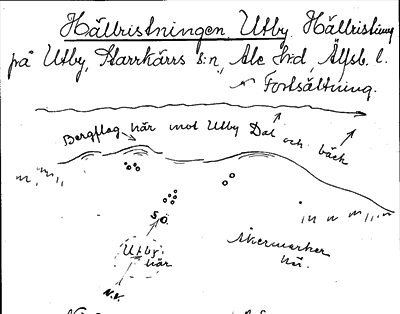 Hällristningen, Utby. Hällristning
på Utby, Starrkärrs s:n, Ale H:d, Älfsb. l.
Fortsättning.
Bergflog här mot Utby Dal och bäck
S.Ö.
Utby.
här
Åkermarker
här.
N.V.